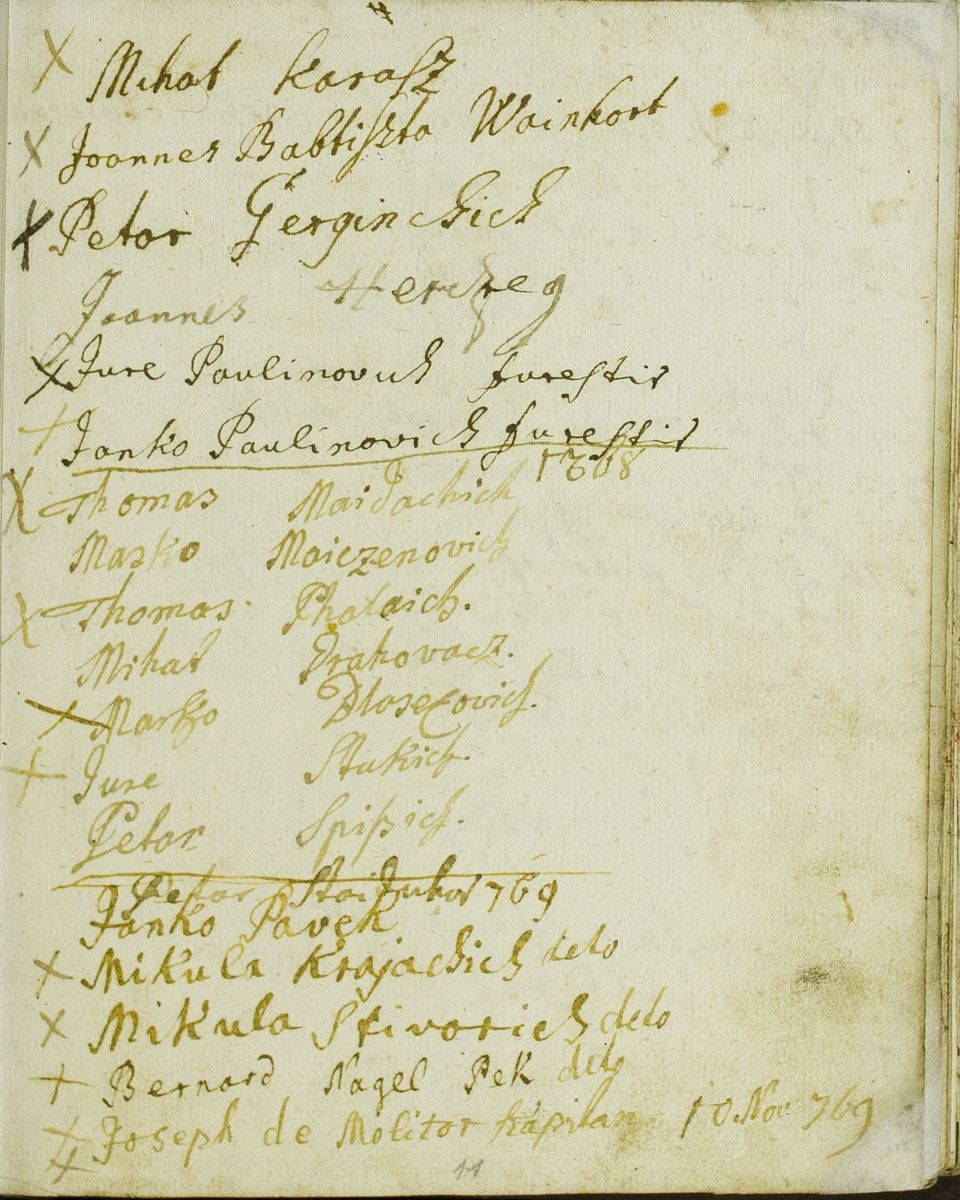 X Mihal Karasz
X Joannes Babtiszta Wainhort
X Petar Gerginchich
Joannes Herczeg
X Jure Paulinovich furestir
+ Janko Paulinovich furestir
1768
X Thomas Maidachich
Marko Maiczenovich
X Thomas Phalaich.
Mihal Drahovacz.
X Marko Blasecovich.
+ Jure Stukich.
Petar Spißich.
Petar 769
Janko Pavek
X Mikula Krajachich deto
X Mikula Stivorich deto
+ Bernard Nagel Pek deto
X Joseph de Molitor kapitan 10. Nov 769
X
11